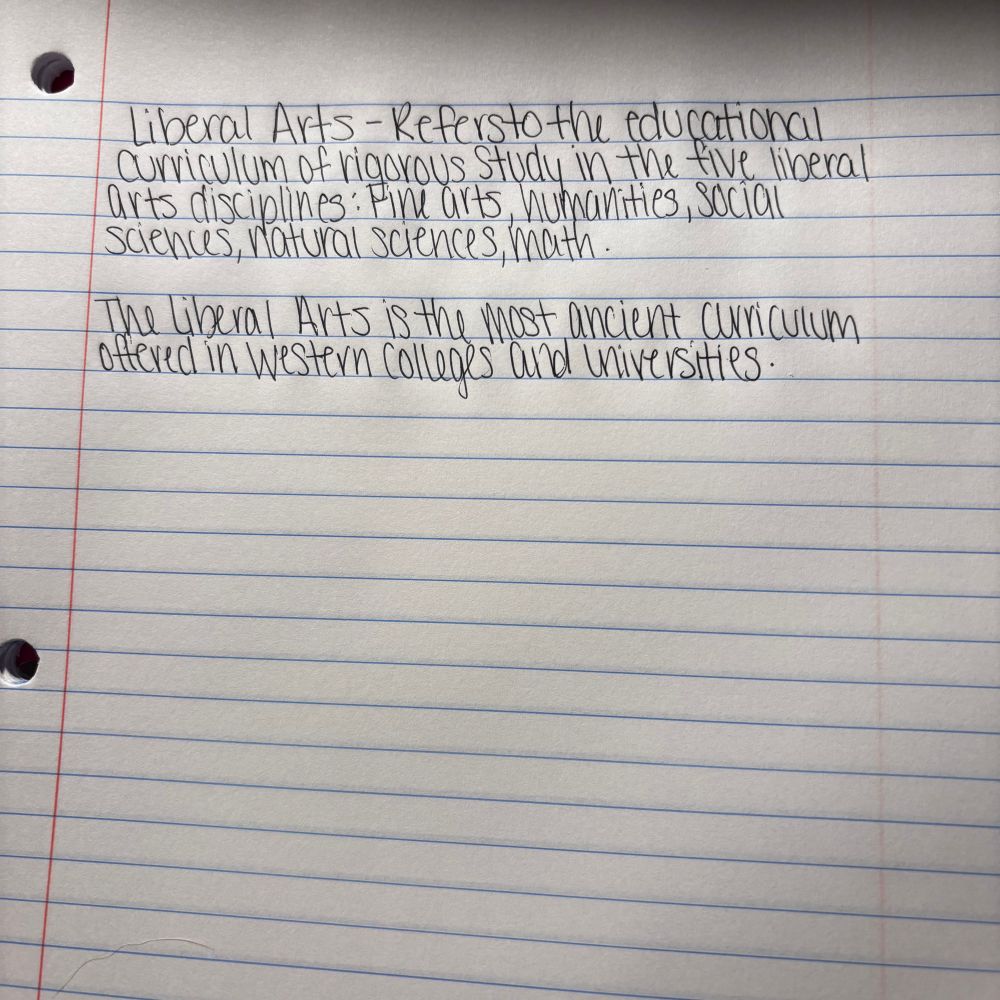 Liberal Arts - Refers to the educational
curriculum of rigorous study in the five liberal
arts disciplines: Fine arts, humanities, social
sciences, natural sciences, math.
The Liberal Arts is the most ancient curriculum
offered in Western Colleges and Universities.